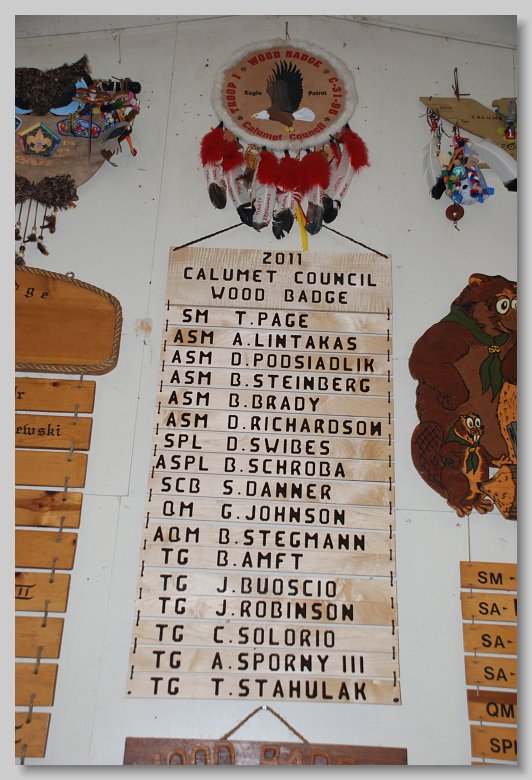 WOOD BADGE
TROOP 1
C-31-98
Eagle Patrol
Calumet Council
2011
CALUMET COUNCIL
WOOD BADGE
SM T.PAGE
ASM A.LINTAKAS
ASM D.PODSIADLIK
ASM B.STEINBERG
ASM B.BRADY
ASM D.RICHARDSON
SPL D.SWIBES
ASPL B.SCHROBA
SCB S.DANNER
QM G.JOHNSON
AQM B.STEGMANN
TG B.AMFT
TG J.BUOSCIO
TG J.ROBINSON
TG C.SOLORIO
TG A.SPORNY III
TG T.STAHULAK
WOOD BADGE
dge
r
ewski
II
CALUMET
SM -
SA-
SA-
SA-
QM
SPL